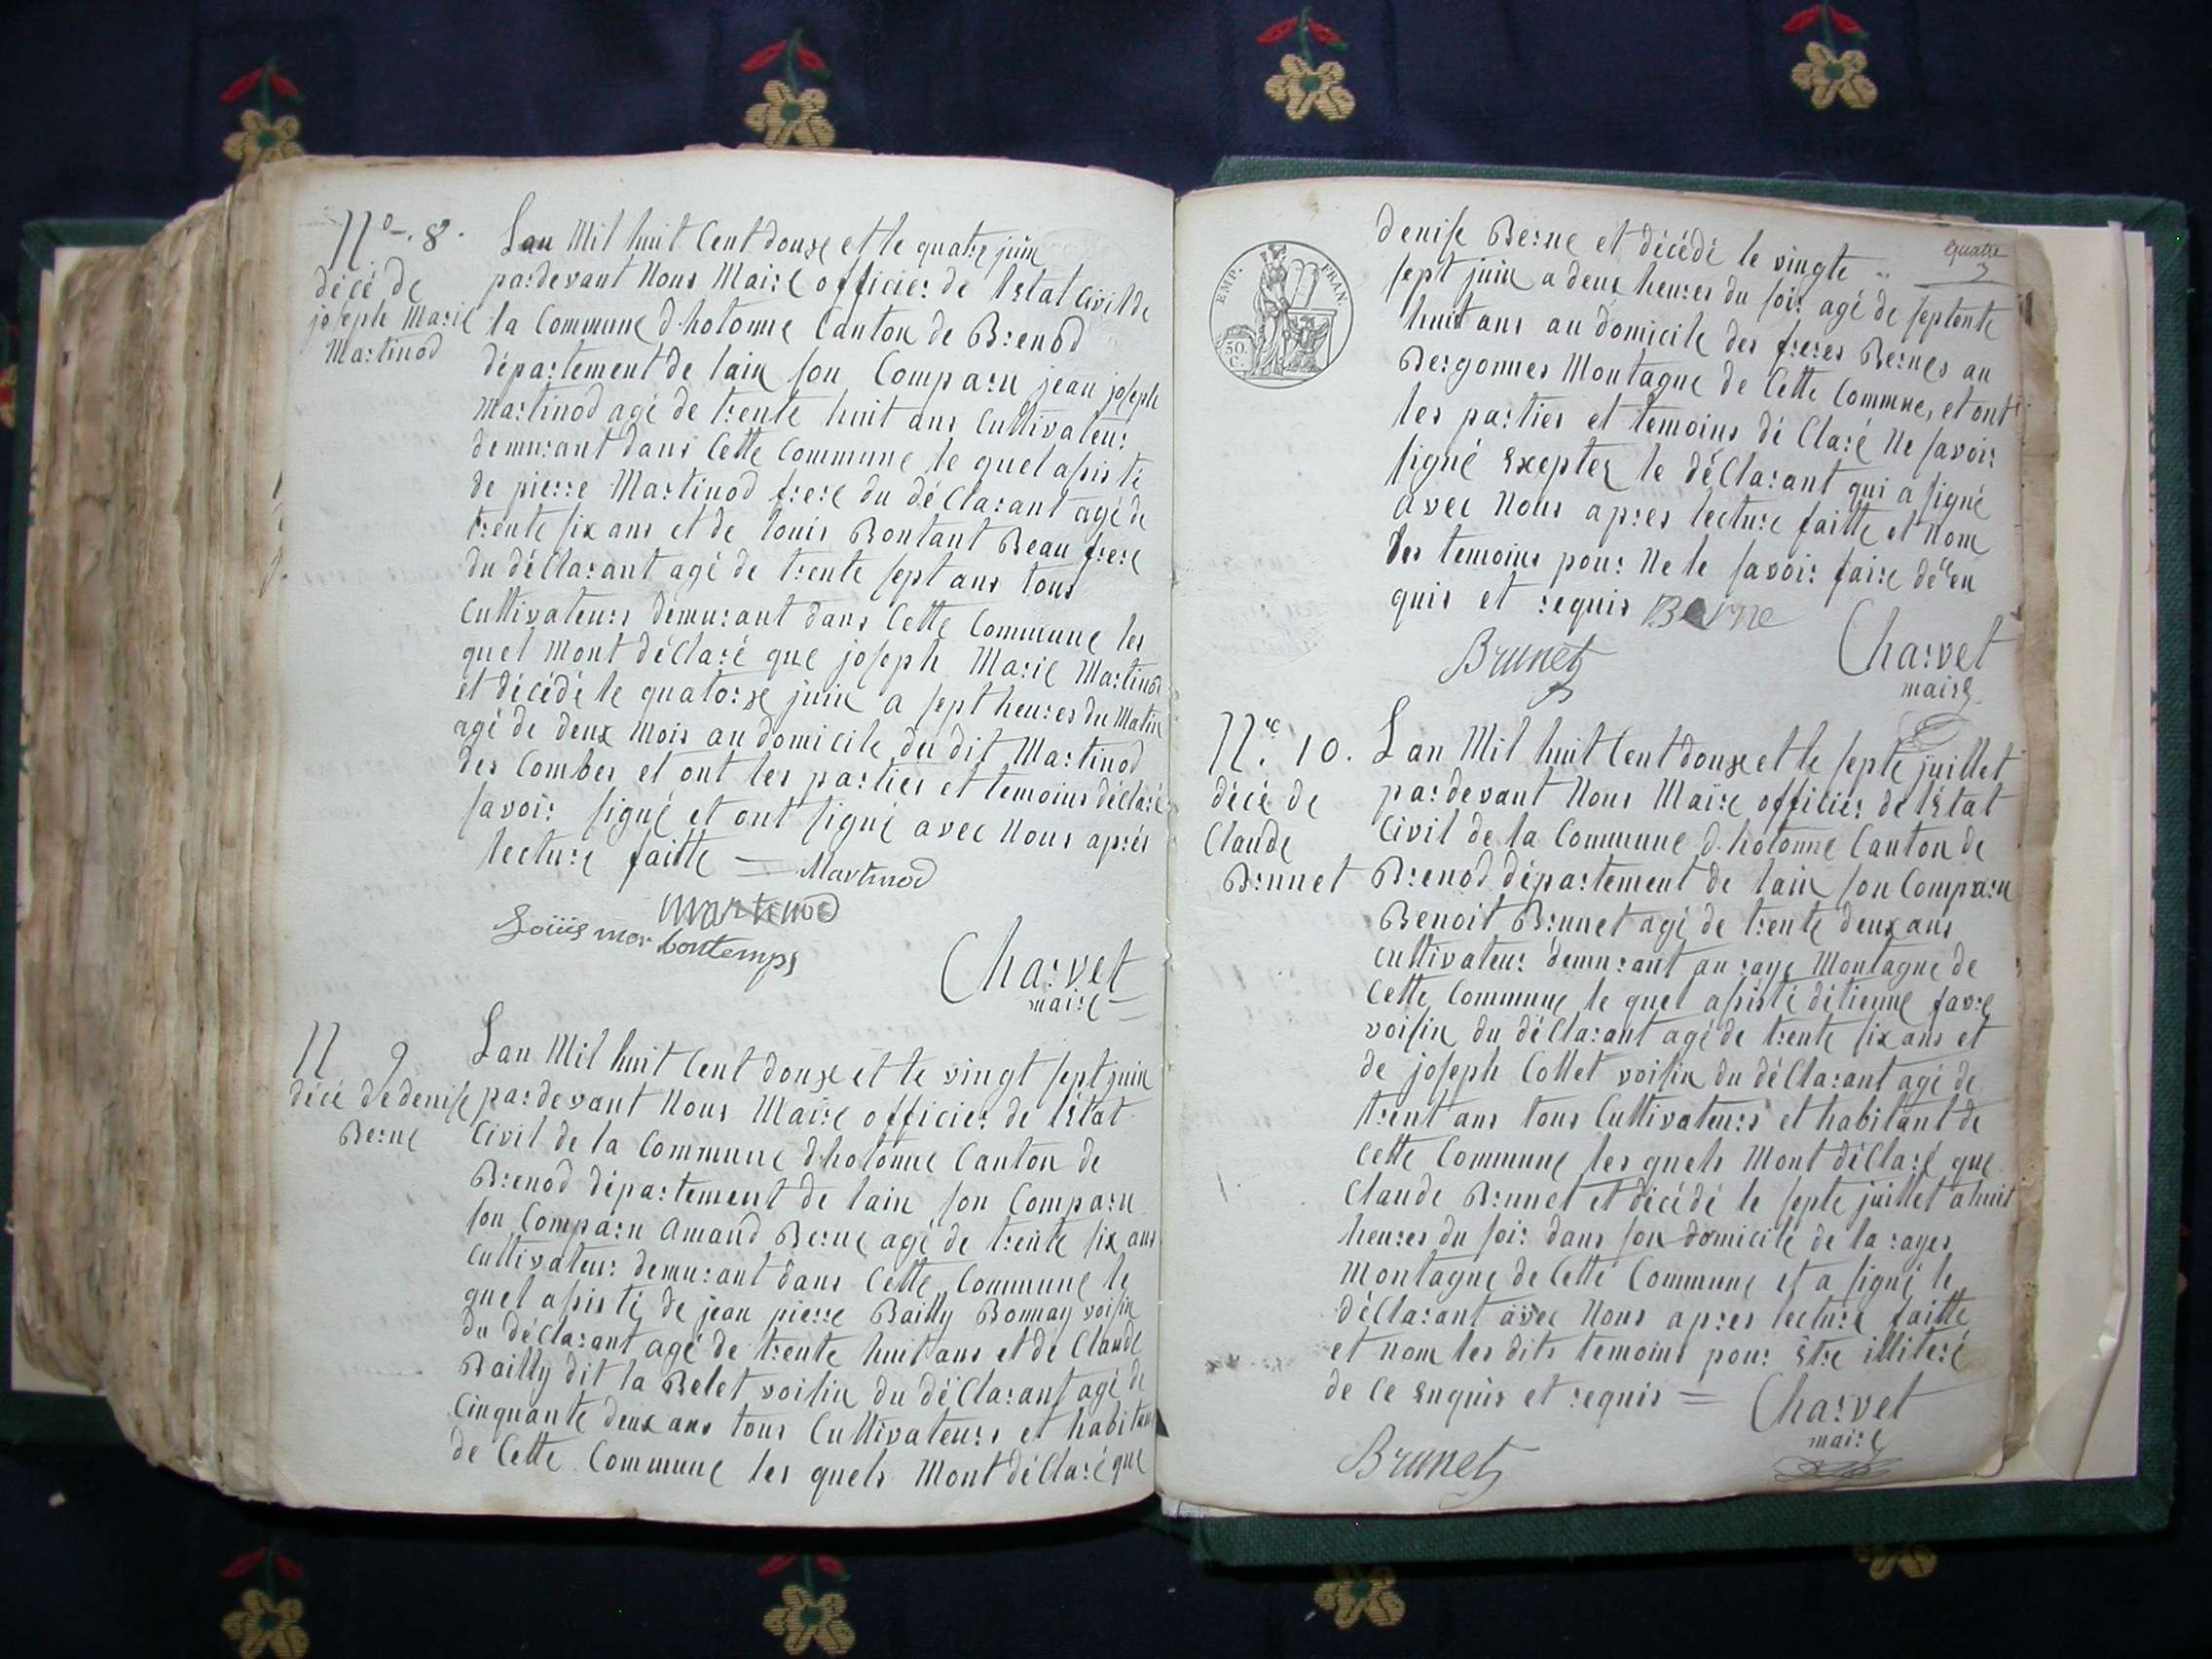 N.o 8.
décé de
joseph Marie
Martinod
Lan Mil huit Cent douze et le quatre juin
pardevant Nous Maire officier de lEtat Civil de
la Commune d.hotonne Canton de Brenod
département de lain son Comparu jean joseph
Martinod agé de trente huit ans Cultivateur
demurant dans Cette Commune le quel asisté
de pierre Martinod frere du déClarant agé de
trente six ans et de louis Bontant Beau frere
du déClarant agé de trente sept ans tous
Cultivateurs demurant dans Cette Commune les
quel Mont déClaré que joseph Marie Martinod
et décédé le quatorze juin a sept heures du Matin
agé de deux Mois au domicile du dit Martinod
des Combes et ont les parties et temoins déclaré
savoir signé et ont signé avec Nous aprés
lecture faitte = Martinod
Martinod
Loüis mar bontemps
Charvet
maire
N 9
décé de denise
Berne
Lan Mil huit Cent douze et le vingt sept juin
pardevant Nous Maire officier de lEtat
Civil de la Commune d.hotonne Canton de
Brenod département de lain son Comparu
son Comparu Amand Berne agé de trente six ans
Cultivateur demurant dans Cette Commune le
quel asisté de jean pierre Bailly Bonnay voisin
du déClarant agé de trente huit ans et de Claude
Bailly dit la Belet voisin du déClarant agé de
Cinquante deux ans tous Cultivateurs et habitant
de Cette Commune les quels Mont déClaré que
EMP. FRAN.
50
c.
quatre
denise Berne et décédé le vingte
sept juin a deux heures du soir agé de septente
huit ans au domicile des freres Bernes au
Bergonnes Montagne de Cette Commune, et ont
les parties et temoins déClaré Ne savoir
signé Exeptez le déClarant qui a signé
avec Nous apres lecture faitte et Nom
des temoins pour Ne le savoir faire de ce en
quis et requis Berne
Brunet
Charvet
maire
N.e 10.
décé de
Claude
Brunet
Lan Mil huit Cent douze et le septe juillet
pardevant Nous Maire officier de lEtat
Civil de la Commune d.hotonne Canton de
Brenod département de lain son Comparu
Benoit Brunet agé de trente deux ans
Cultivateur démurant au raye Montagne de
Cette Commune le quel asisté détienne favre
voisin du déClarant agé de trente six ans et
de joseph Collet voisin du déClarant agé de
trent ans tous Cultivateurs et habitant de
Cette Commune les quels Mont déClaré que
Claude Brunet et décédé le septe juillet a huit
heures du soir dans son domicile de la rayes
Montagne de Cette Commune et a signé le
déClarant avec Nous apres lecture faitte
et nom les dits temoins pour Etre illiteré
de Ce Enquis et requis =
Charvet
maire
Brunet